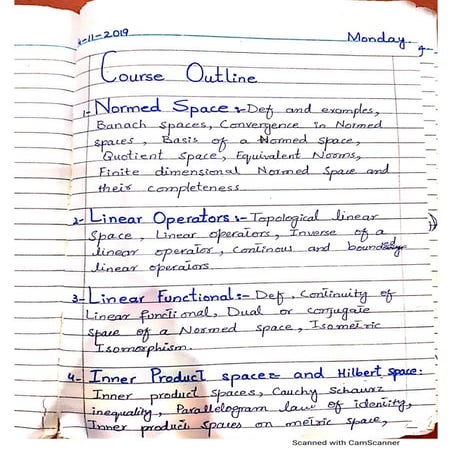 4-11-2019 Monday
Course Outline
1- Normed Space :- Def and examples,
Banach spaces, Convergence in Normed
spaces, Basis of a Normed Space,
Quotient space, Equivalent Norms,
Finite dimensional Normed Space and
their completeness
2- Linear Operators :- Topological linear
Space, Linear operators, Inverse of a
linear operator, Continous and boundedg
linear operators
3- Linear Functional :- Def, Continuity of
Linear functional, Dual or conjugate
space of a Normed space, Isometric
Isomorphism.
4- Inner Product space and Hilbert space:
Inner product spaces, Cauchy Schaurz
inequality, Parallelogram law of identity,
Inner product spaces on metric space,
Scanned with CamScanner